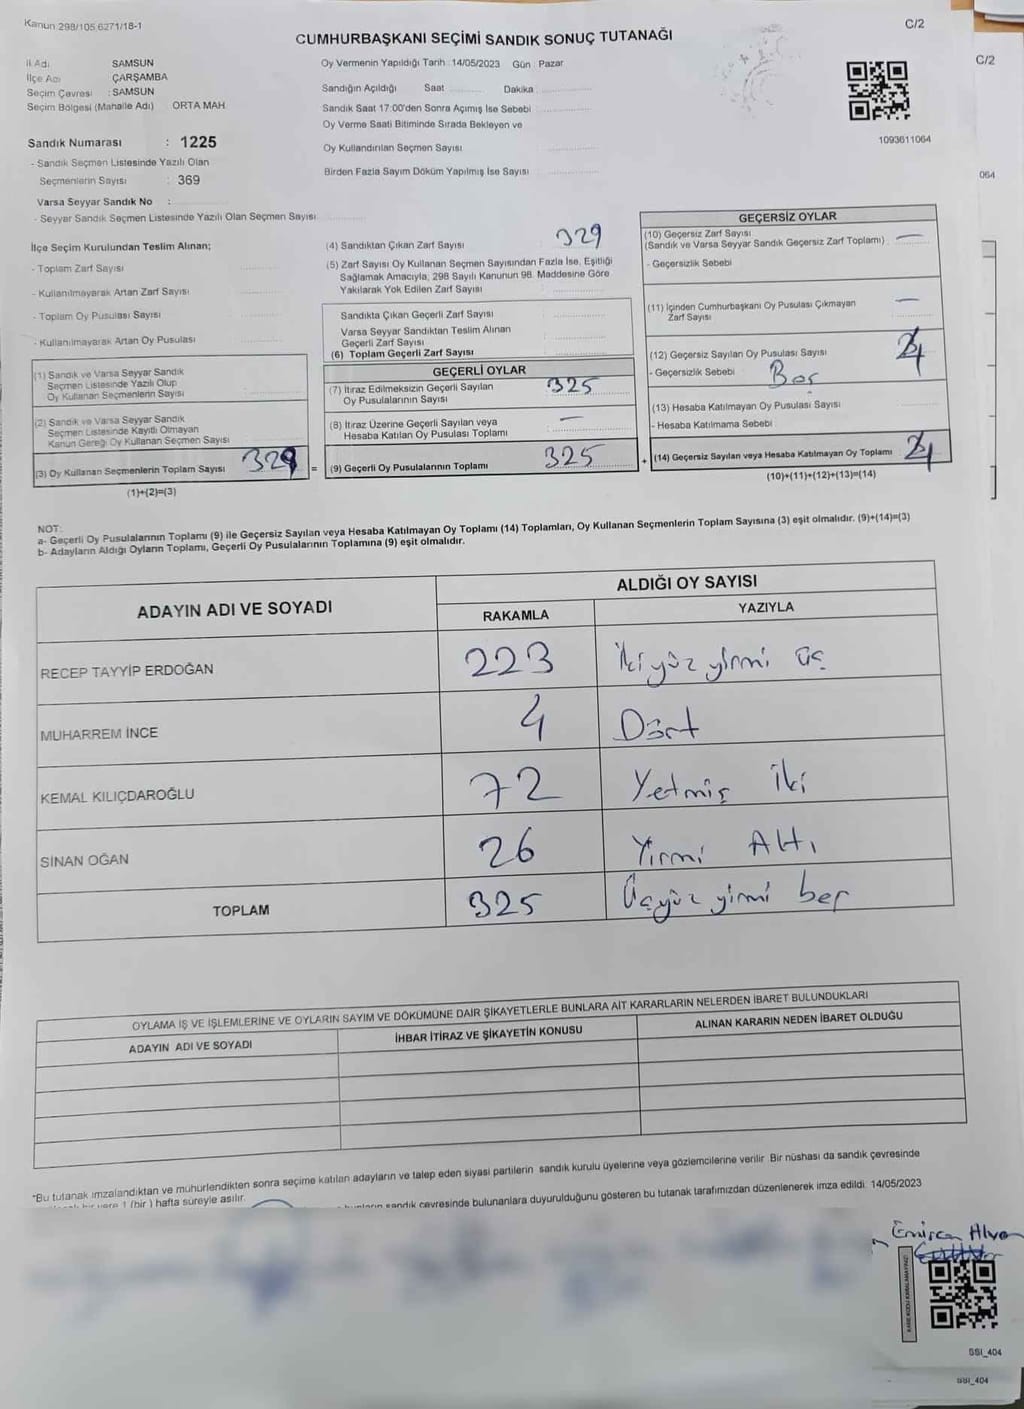 Kanun 298/105 6271/18-1
C/2
CUMHURBAŞKANI SEÇİMİ SANDIK SONUÇ TUTANAĞI
İl Adı SAMSUN
İlçe Adı ÇARŞAMBA
Seçim Çevresi : SAMSUN
Seçim Bölgesi (Mahalle Adı) ORTA MAH
Sandık Numarası : 1225
- Sandık Seçmen Listesinde Yazılı Olan
Seçmenlerin Sayısı : 369
Varsa Seyyar Sandık No :
- Seyyar Sandık Seçmen Listesinde Yazılı Olan Seçmen Sayısı
Oy Vermenin Yapıldığı Tarih : 14/05/2023 Gün : Pazar
Sandığın Açıldığı Saat Dakika
Sandık Saat 17:00'den Sonra Açımış İse Sebebi
Oy Verme Saati Bitiminde Sırada Bekleyen ve
Oy Kullandırılan Seçmen Sayısı
Birden Fazla Sayım Döküm Yapılmış İse Sayısı
1093611064
C/2
064
İlçe Seçim Kurulundan Teslim Alınan;
- Toplam Zarf Sayısı
- Kullanılmayarak Artan Zarf Sayısı
- Toplam Oy Pusulası Sayısı
- Kullanılmayarak Artan Oy Pusulası
(1) Sandık ve Varsa Seyyar Sandık
Seçmen Listesinde Yazılı Olup
Oy Kullanan Seçmenlerin Sayısı
(2) Sandık ve Varsa Seyyar Sandık
Seçmen Listesinde Kayıtlı Olmayan
Kanun Gereği Oy Kullanan Seçmen Sayısı
(3) Oy Kullanan Seçmenlerin Toplam Sayısı 329
(1)+(2)=(3)
(4) Sandıktan Çıkan Zarf Sayısı 329
(5) Zarf Sayısı Oy Kullanan Seçmen Sayısından Fazla İse, Eşitliği
Sağlamak Amacıyla, 298 Sayılı Kanunun 98. Maddesine Göre
Yakılarak Yok Edilen Zarf Sayısı
Sandıkta Çıkan Geçerli Zarf Sayısı
Varsa Seyyar Sandıktan Teslim Alınan
Geçerli Zarf Sayısı
(6) Toplam Geçerli Zarf Sayısı
GEÇERLİ OYLAR
(7) İtiraz Edilmeksizin Geçerli Sayılan
Oy Pusulalarının Sayısı 325
(8) İtiraz Üzerine Geçerli Sayılan veya
Hesaba Katılan Oy Pusulası Toplamı —
= (9) Geçerli Oy Pusulalarının Toplamı 325
GEÇERSİZ OYLAR
(10) Geçersiz Zarf Sayısı
(Sandık ve Varsa Seyyar Sandık Geçersiz Zarf Toplamı) —
- Geçersizlik Sebebi
(11) İçinden Cumhurbaşkanı Oy Pusulası Çıkmayan
Zarf Sayısı —
(12) Geçersiz Sayılan Oy Pusulası Sayısı 4
- Geçersizlik Sebebi Boş
(13) Hesaba Katılmayan Oy Pusulası Sayısı
- Hesaba Katılmama Sebebi
+ (14) Geçersiz Sayılan veya Hesaba Katılmayan Oy Toplamı 4
(10)+(11)+(12)+(13)=(14)
NOT:
a- Geçerli Oy Pusulalarının Toplamı (9) ile Geçersiz Sayılan veya Hesaba Katılmayan Oy Toplamı (14) Toplamları, Oy Kullanan Seçmenlerin Toplam Sayısına (3) eşit olmalıdır. (9)+(14)=(3)
b- Adayların Aldığı Oyların Toplamı, Geçerli Oy Pusulalarının Toplamına (9) eşit olmalıdır.
ADAYIN ADI VE SOYADI
ALDIĞI OY SAYISI
RAKAMLA YAZIYLA
RECEP TAYYİP ERDOĞAN 223 İkiyüz yirmi üç
MUHARREM İNCE 4 Dört
KEMAL KILIÇDAROĞLU 72 Yetmiş İki
SİNAN OĞAN 26 Yirmi Altı
TOPLAM 325 Üçyüz yirmi beş
OYLAMA İŞ VE İŞLEMLERİNE VE OYLARIN SAYIM VE DÖKÜMÜNE DAİR ŞİKAYETLERLE BUNLARA AİT KARARLARIN NELERDEN İBARET BULUNDUKLARI
ADAYIN ADI VE SOYADI İHBAR İTİRAZ VE ŞİKAYETİN KONUSU ALINAN KARARIN NEDEN İBARET OLDUĞU
*Bu tutanak imzalandıktan ve mühürlendikten sonra seçime katılan adayların ve talep eden siyasi partilerin sandık kurulu üyelerine veya gözlemcilerine verilir Bir nüshası da sandık çevresinde
bir yere 1 (bir) hafta süreyle asılır.
sandık çevresinde bulunanlara duyurulduğunu gösteren bu tutanak tarafımızdan düzenlenerek imza edildi 14/05/2023
SSI_404
SSI_404